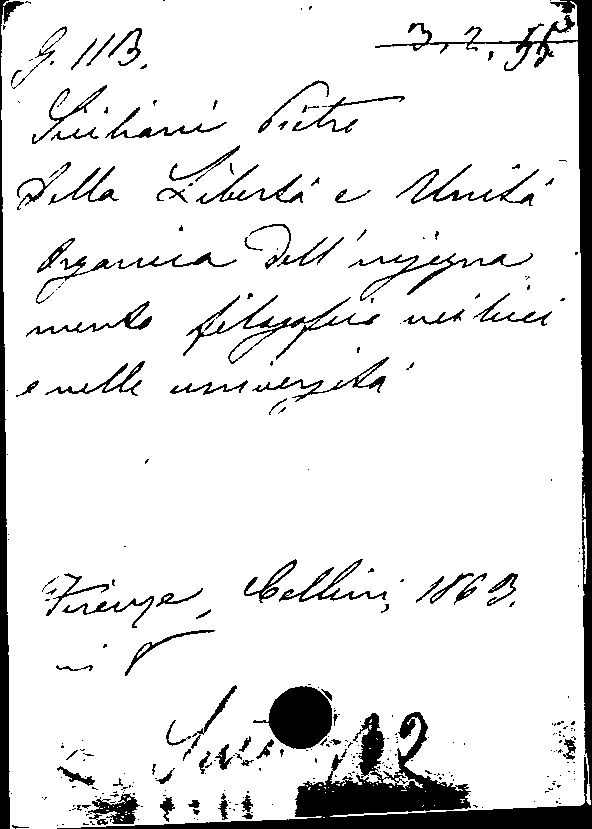 G. 113. 3.2.55
Siciliani Pietro
Della Libertà e Unità
organica dell'insegna
mento filosofico nei licei
e nelle università
Firenze, Cellini, 1863.
in 8